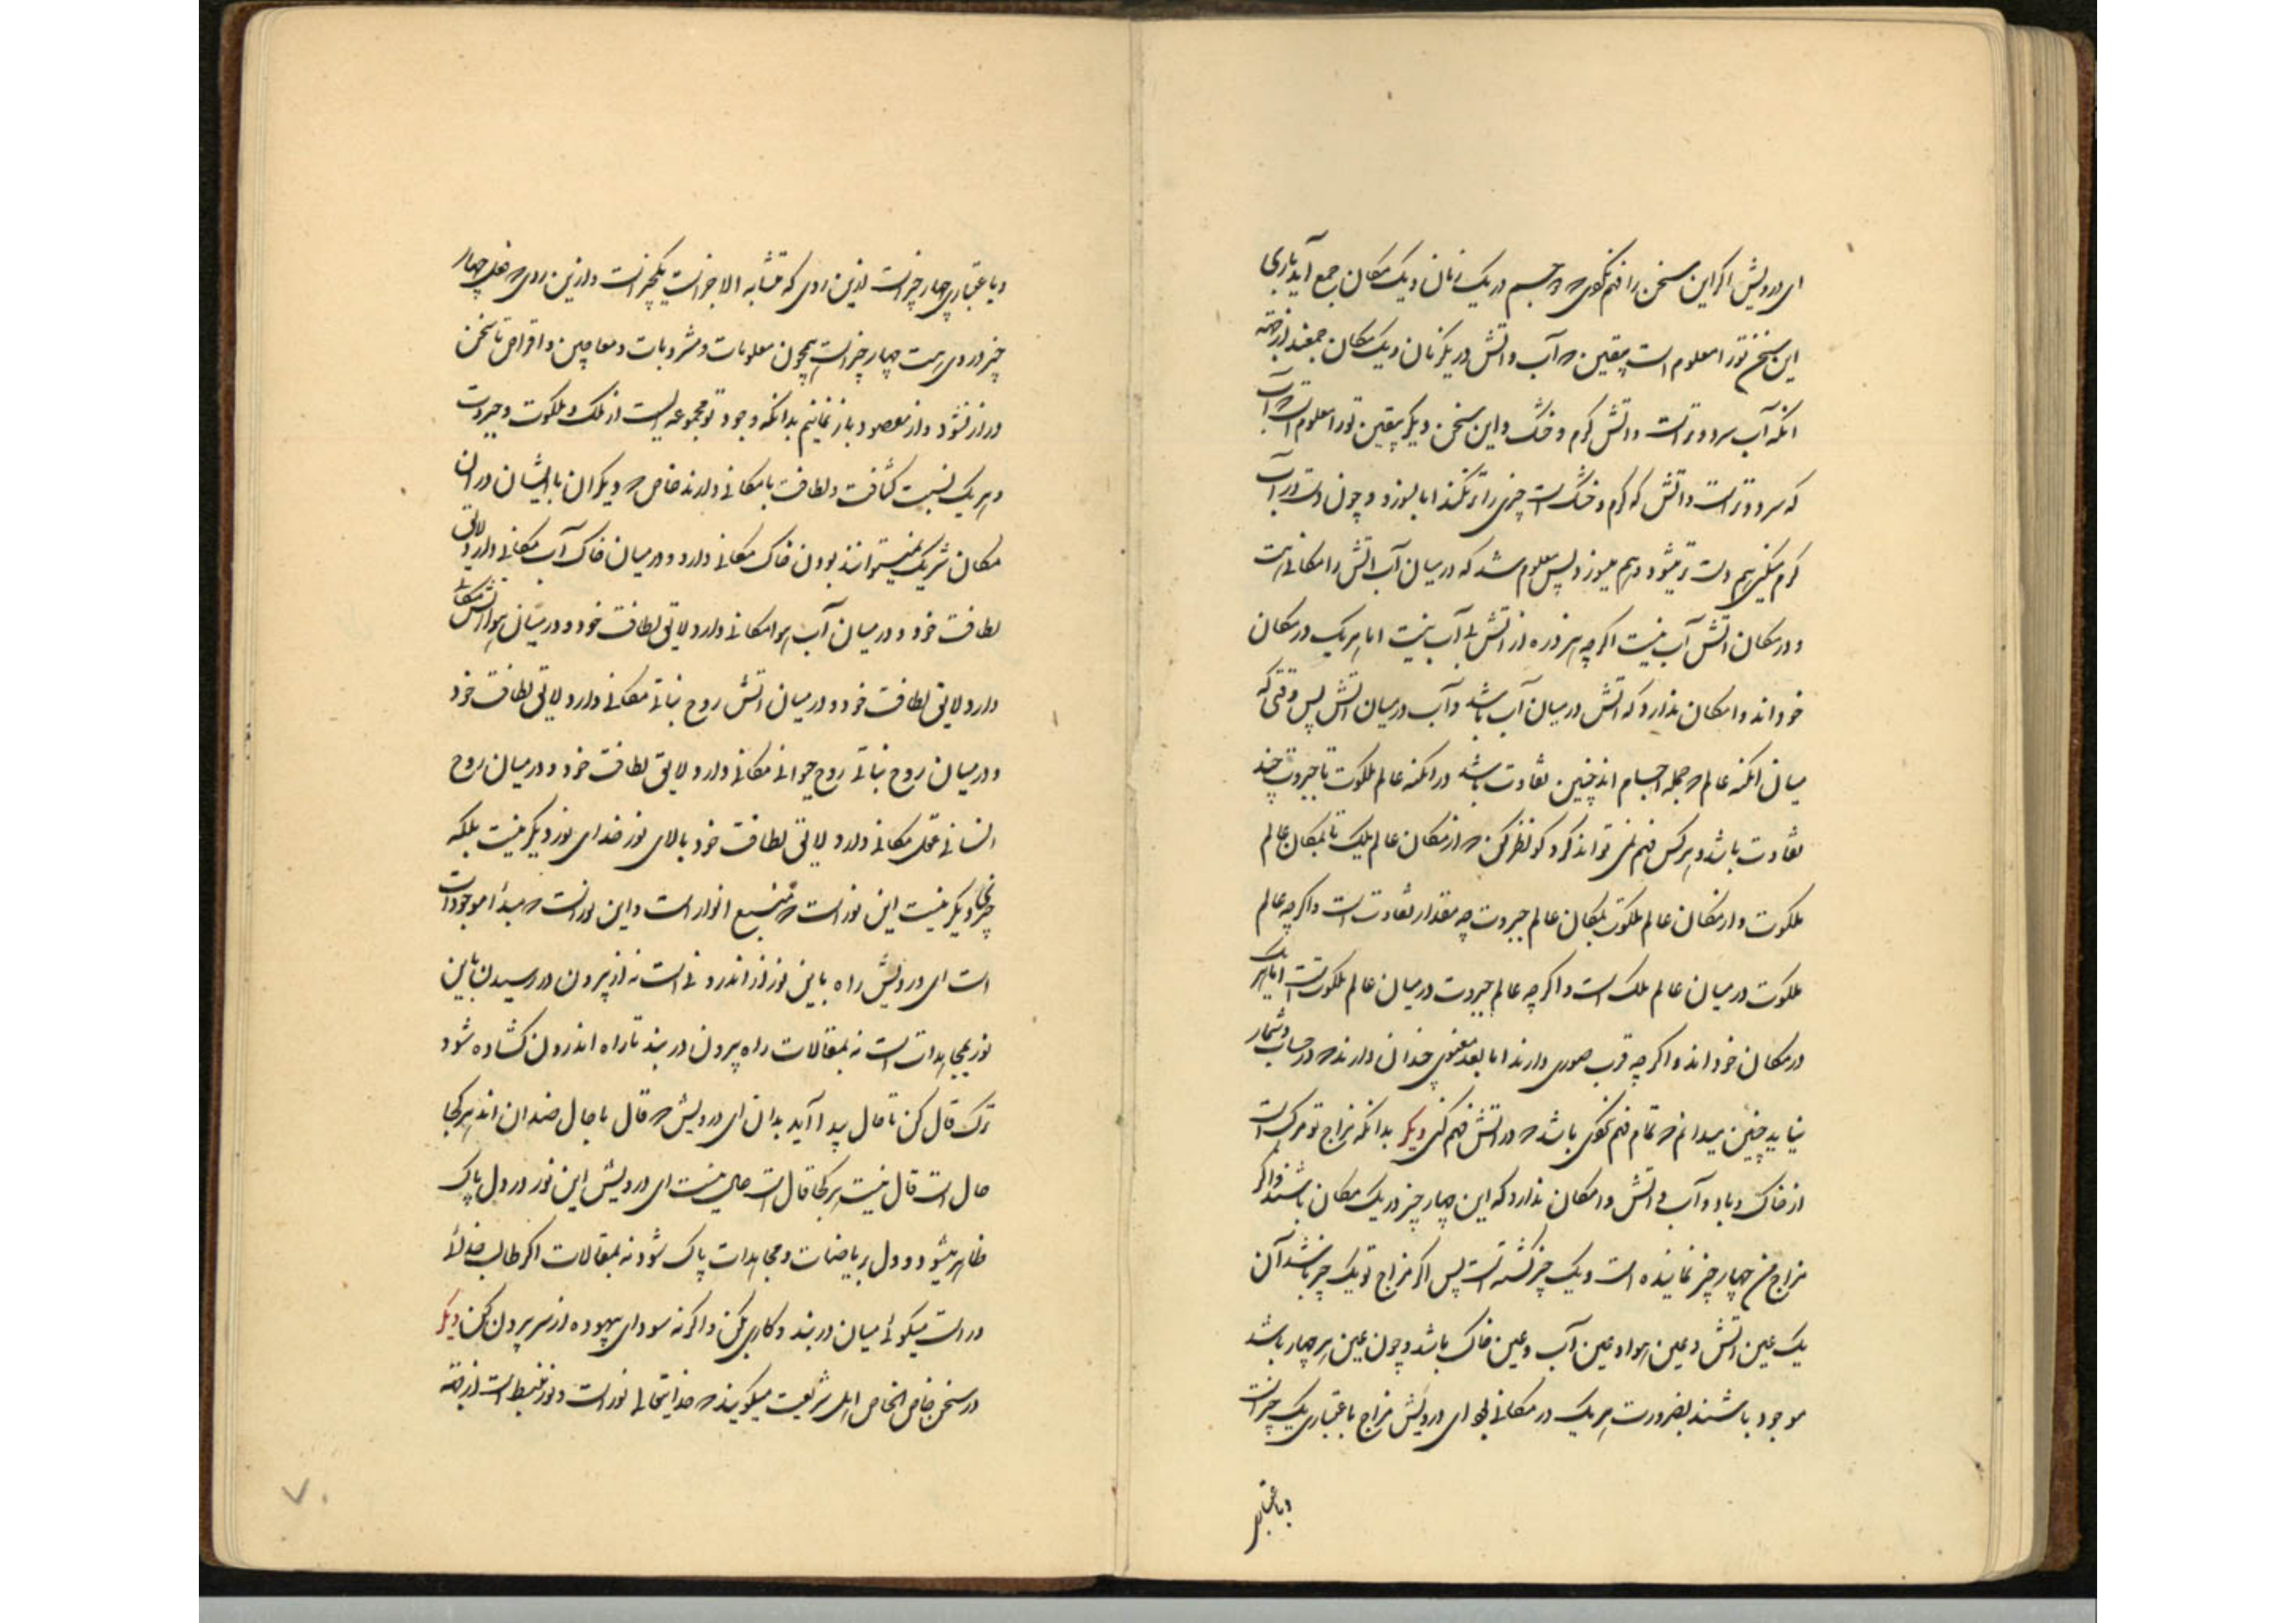 ای درویش اگر این سخن را فهم نکنی که دو جسم در یک زمان و یک مکان جمع آید باری
این سخن تو را معلوم است بیقین که آب و آتش در یکزمان و یک مکان جمعند از جهة
آنکه آب سرد و تر است و آتش گرم و خشک و این سخن دیگر بیقین تو را معلوم است که آب
که سرد و تر است و آتش که گرم و خشک است چیزی را تر نکند اما بسوزد و چون دست در آب
گرم میکنی هم دست تر میشود و هم میسوزد پس معلوم شد که در میان آب آتش را مکانی هست
و در مکان آتش آب نیست اگر چه هر ذره از آتش بی آب نیست اما هر یک در مکان
خوداند و امکان ندارد که آتش در میان آب باشد و آب در میان آتش پس وقتی که
میان امکنه عالم که جمله اجسام اند چنین تفاوت باشد در امکنه عالم ملکوت تا جبروت چند
تفاوت باشد و هر کس فهم نمی تواند کرد کو نظر کن که از مکان عالم ملک تا بمکان عالم
ملکوت و از مکان عالم ملکوت بمکان عالم جبروت چه مقدار تفاوت است و اگر چه عالم
ملکوت در میان عالم ملک است و اگر چه عالم جبروت در میان عالم ملکوتست اما هر یک
در مکان خوداند و اگر چه قرب صوری دارند اما بعد معنوی چندان دارند که در حساب و شمار
نیاید چنین میدانم که تمام فهم نکنی باشد که در آتش فهم کنی دیگر بدانکه مزاج تو مرکب است
از خاک و باد و آب و آتش و امکان ندارد که این چهار چیز در یک مکان باشند و اگر
مزاج من چهار چیز نمانیده است و یک چیز گشته است پس اگر مزاج تو یک چیز باشد آن
یک عین آتش و عین هوا و عین آب و عین خاک باشد و چون عین هر چهار باشد
موجود باشند بضرورت هر یک در مکانی بود ای درویش مزاج باعتباری یک چیز است
و باعتباری
و باعتباری چهار چیز است ازین روی که متشابه الاجزاست یکچیز است و ازین روی که فعل چهار
چیز در وی هست چهار چیز است همچون معلومات و مشروبات و معاجین و اقراص تا سخن
دراز نشود و از مقصود باز نمانیم بدانکه وجود تو مجموعه ایست از ملک و ملکوت و جبروت
و هر یک نسبت کثافت و لطافت با مکانی دارند خاص که دیگران با ایشان در آن
مکان شریک نمیتوانند بودن خاک مکانی دارد و در میان خاک آب مکانی دارد لایق
لطافت خود و در میان آب هوا مکانی دارد لایق لطافت خود و در میان هوا آتش مکانی
دارد لایق لطافت خود و در میان آتش روح نباتی مکانی دارد لایق لطافت خود
و در میان روح نباتی روح حیوانی مکانی دارد لایق لطافت خود و در میان روح
انسانی عقل مکانی دارد لایق لطافت خود بالای نور خدای نور دیگر نیست بلکه
چیزی دیگر نیست این نور است که منبع انوار است و این نور است که مبدأ موجودات
است ای درویش راه باین نور از اندرونی است نه از بیرون در رسیدن باین
نور بمجاهدات است نه بمقالات راه بیرون در بند تا راه اندرون گشاده شود
ترک قال کن تا حال پیدا آید بدان ای درویش که قال با حال ضدان اند هر کجا
حال است قال نیست هر کجا قال است حال نیست ای درویش این نور در دل پاک
ظاهر میشود و دل بریاضات و مجاهدات پاک شود نه بمقالات اگر طالب خدائی
و راست میگوئی میان در بند و کاری بکن و اگر نه سودای بیهوده از سر بیرون کن دیگر
در سخن خاص الخاص اهل شریعت میگویند که خدایتعالی نور است و نور منبسط است از جهة